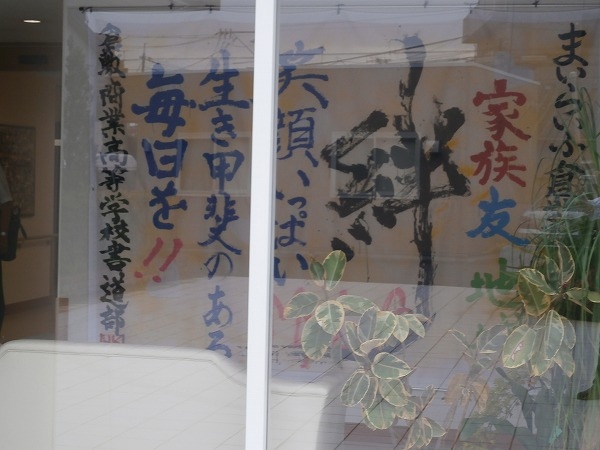 まいらいふ倉
家族
友
地
絆
笑顔いっぱい
生き甲斐のある
毎日を!!
倉敷商業高等学校書道部